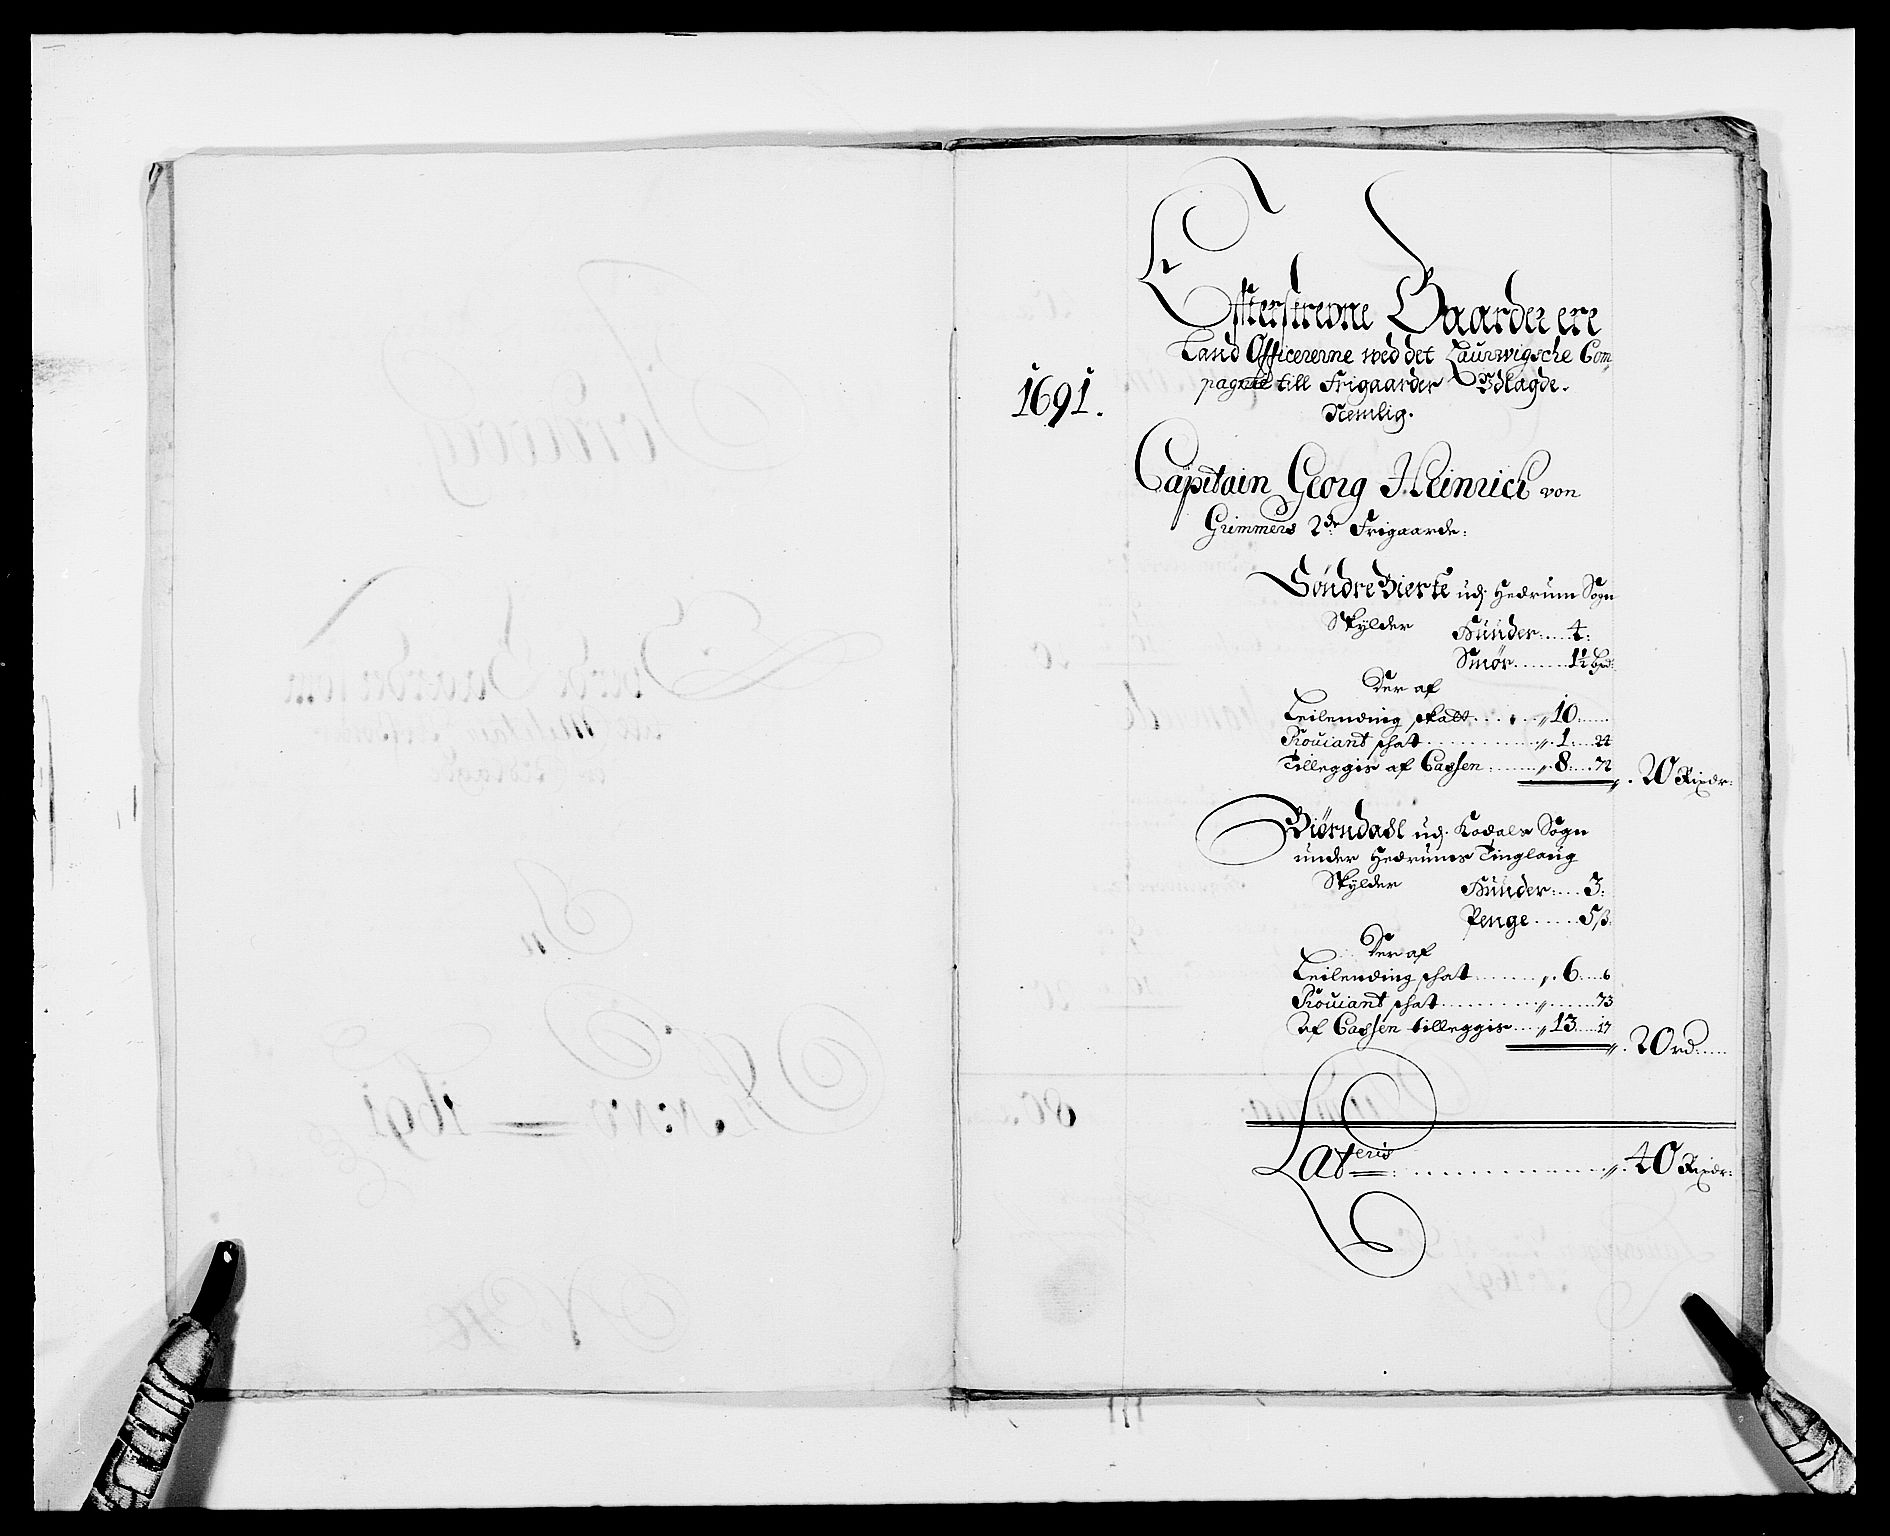 Efterskrevne Gaarder ere
Land Officererne wed det Laurwigsche Com
pagnie till Frigaarder Udlagde.
1691.
Nemlig.
Capitain Georg Heinrich von
Grimmers 2de Frigaarde:
Söndre Bierke udj Hedrum Sogn
Skylder Hunder: 4:
Smör 1½ bpd:
Der af
Leilending skatt 10
Proviant schat 1 24
Tilleggis af Cassen 8 72 20 Rixdr:
Biørndahl udj Kodals Sogn
under Hedrums Tinglaug
Skylder Hunder: 3:
Penge 5 β:
Der af
Leilending schat 6 6
Proviant schat 73
Af Cassen tilleggis 13 17 20 rd:
Lateris 40 Rixdr: